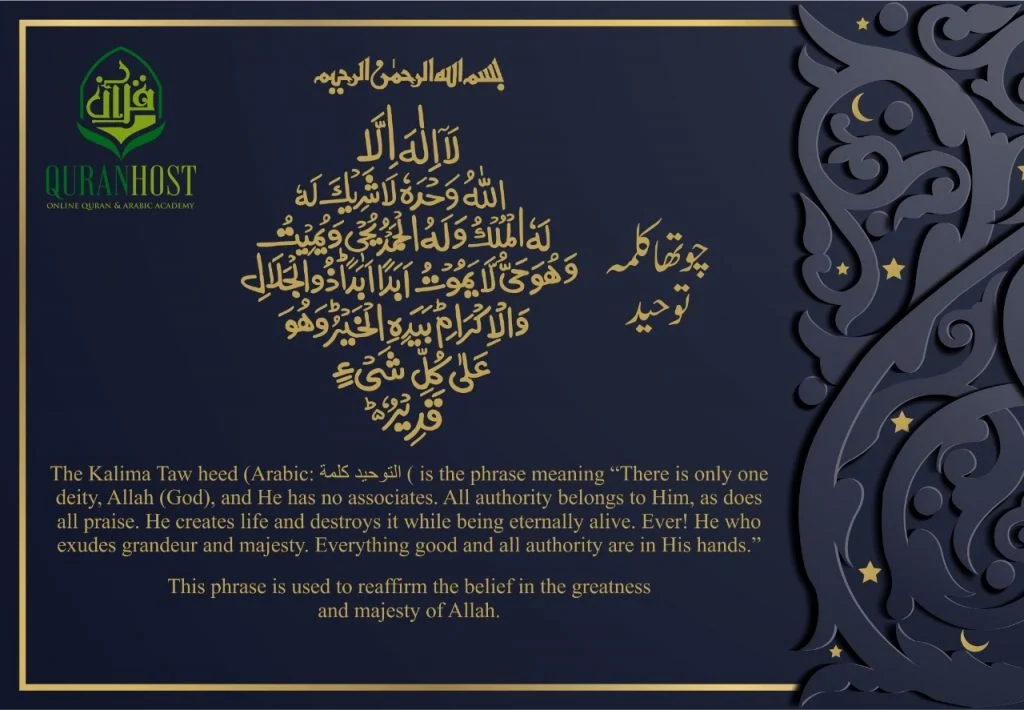 قرآن
QURANHOST
ONLINE QURAN & ARABIC ACADEMY
بسم الله الرحمٰن الرحیم
لَآ اِلٰهَ اِلَّا
اللهُ وَحْدَهٗ لَا شَرِيْكَ لَهٗ
لَهُ الْمُلْكُ وَلَهُ الْحَمْدُ يُحْىٖ وَيُمِيْتُ
وَهُوَ حَىٌّ لَّا يَمُوْتُ اَبَدًا اَبَدًا ؕ ذُو الْجَلَالِ
وَالْاِكْرَامِ ؕ بِيَدِهِ الْخَيْرُ ؕ وَهُوَ
عَلٰى كُلِّ شَىْءٍ
قَدِيْرٌ ؕ
چوتھا کلمہ
توحید
The Kalima Taw heed (Arabic: التوحيد كلمة ( is the phrase meaning “There is only one
deity, Allah (God), and He has no associates. All authority belongs to Him, as does
all praise. He creates life and destroys it while being eternally alive. Ever! He who
exudes grandeur and majesty. Everything good and all authority are in His hands.”
This phrase is used to reaffirm the belief in the greatness
and majesty of Allah.